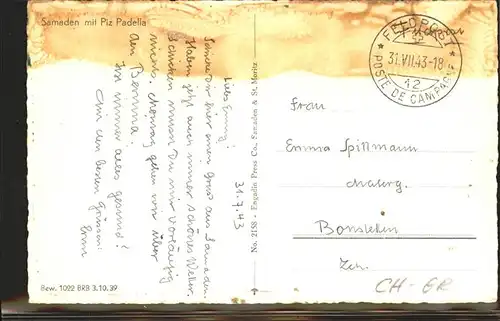 Samaden mit Piz Padella
31.7.43
Liebs Emmy!
Schicke Dir hier einen Gruss aus Samaden.
Haben jetzt auch immer schönes Wetter.
Schicken musst Du mir vorläufig
nichts. Montag gehen wir über
den Bernina.
Ist immer alles gesund?
Mit den besten Grüssen:
Bew. 1022 BRB 3.10.39
No. 2158 - Engadin Press Co., Samaden & St. Moritz
FELDPOST
31.VII.43-18
12
POSTE DE CAMPAGNE
Frau
Emma Spittmann
Bonstetten
Zch.
CH-GR